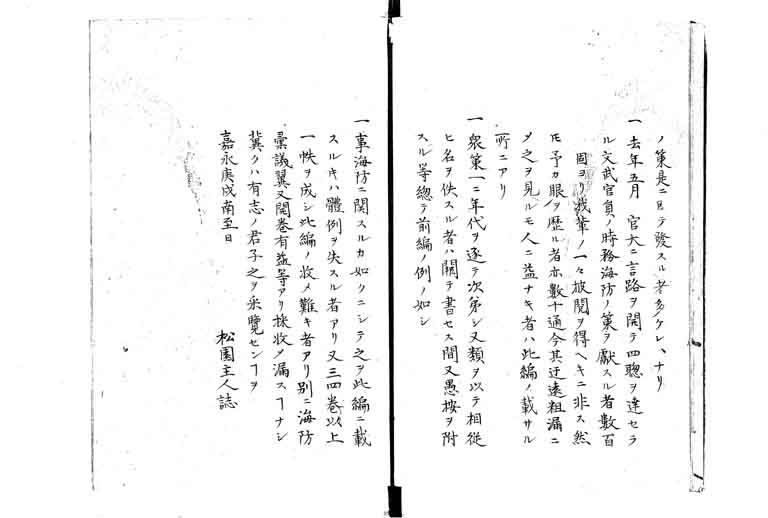 ノ策是ニ因テ發スル者多ケレハナリ
一 去年五月 官大ニ言路ヲ開テ四聰ヲ達セラ
ル文武官員ノ時務海防ノ策ヲ獻スル者數百
固ヨリ我輩ノ一々披閲ヲ得ヘキニ非ス然
モ予カ眼ヲ歴ル者亦數十通今其迂遠粗漏ニ
〆之ヲ見ルモ人ニ益ナキ者ハ此編ノ載サル
所ニアリ
一 衆策一ニ年代ヲ逐テ次第シ又類ヲ以テ相從
ヒ名ヲ佚スル者ハ闕テ書セス間又愚按ヲ附
スル等總テ前編ノ例ノ如シ
一 事海防ニ関スルカ如クニシテ之ヲ此編ニ載
スルキハ體例ヲ失スル者アリ又三四巻以上
一帙ヲ成シ此編ノ收メ難キ者アリ別ニ海防
彙議翼又開巻有益等アリ採收〆漏スヿナシ
冀クハ有志ノ君子之ヲ采覽センヿヲ
嘉永庚戌南至日
松園主人誌